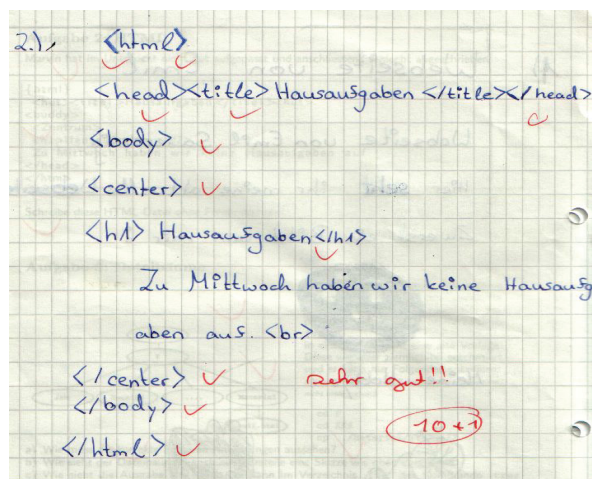 2.), <html>
<head><title> Hausaufgaben </title></head>
<body>
<center>
<h1> Hausaufgaben </h1>
Zu Mittwoch haben wir keine Hausaufg
aben auf. <br>
</center> sehr gut!!
</body>
10+1
</html>